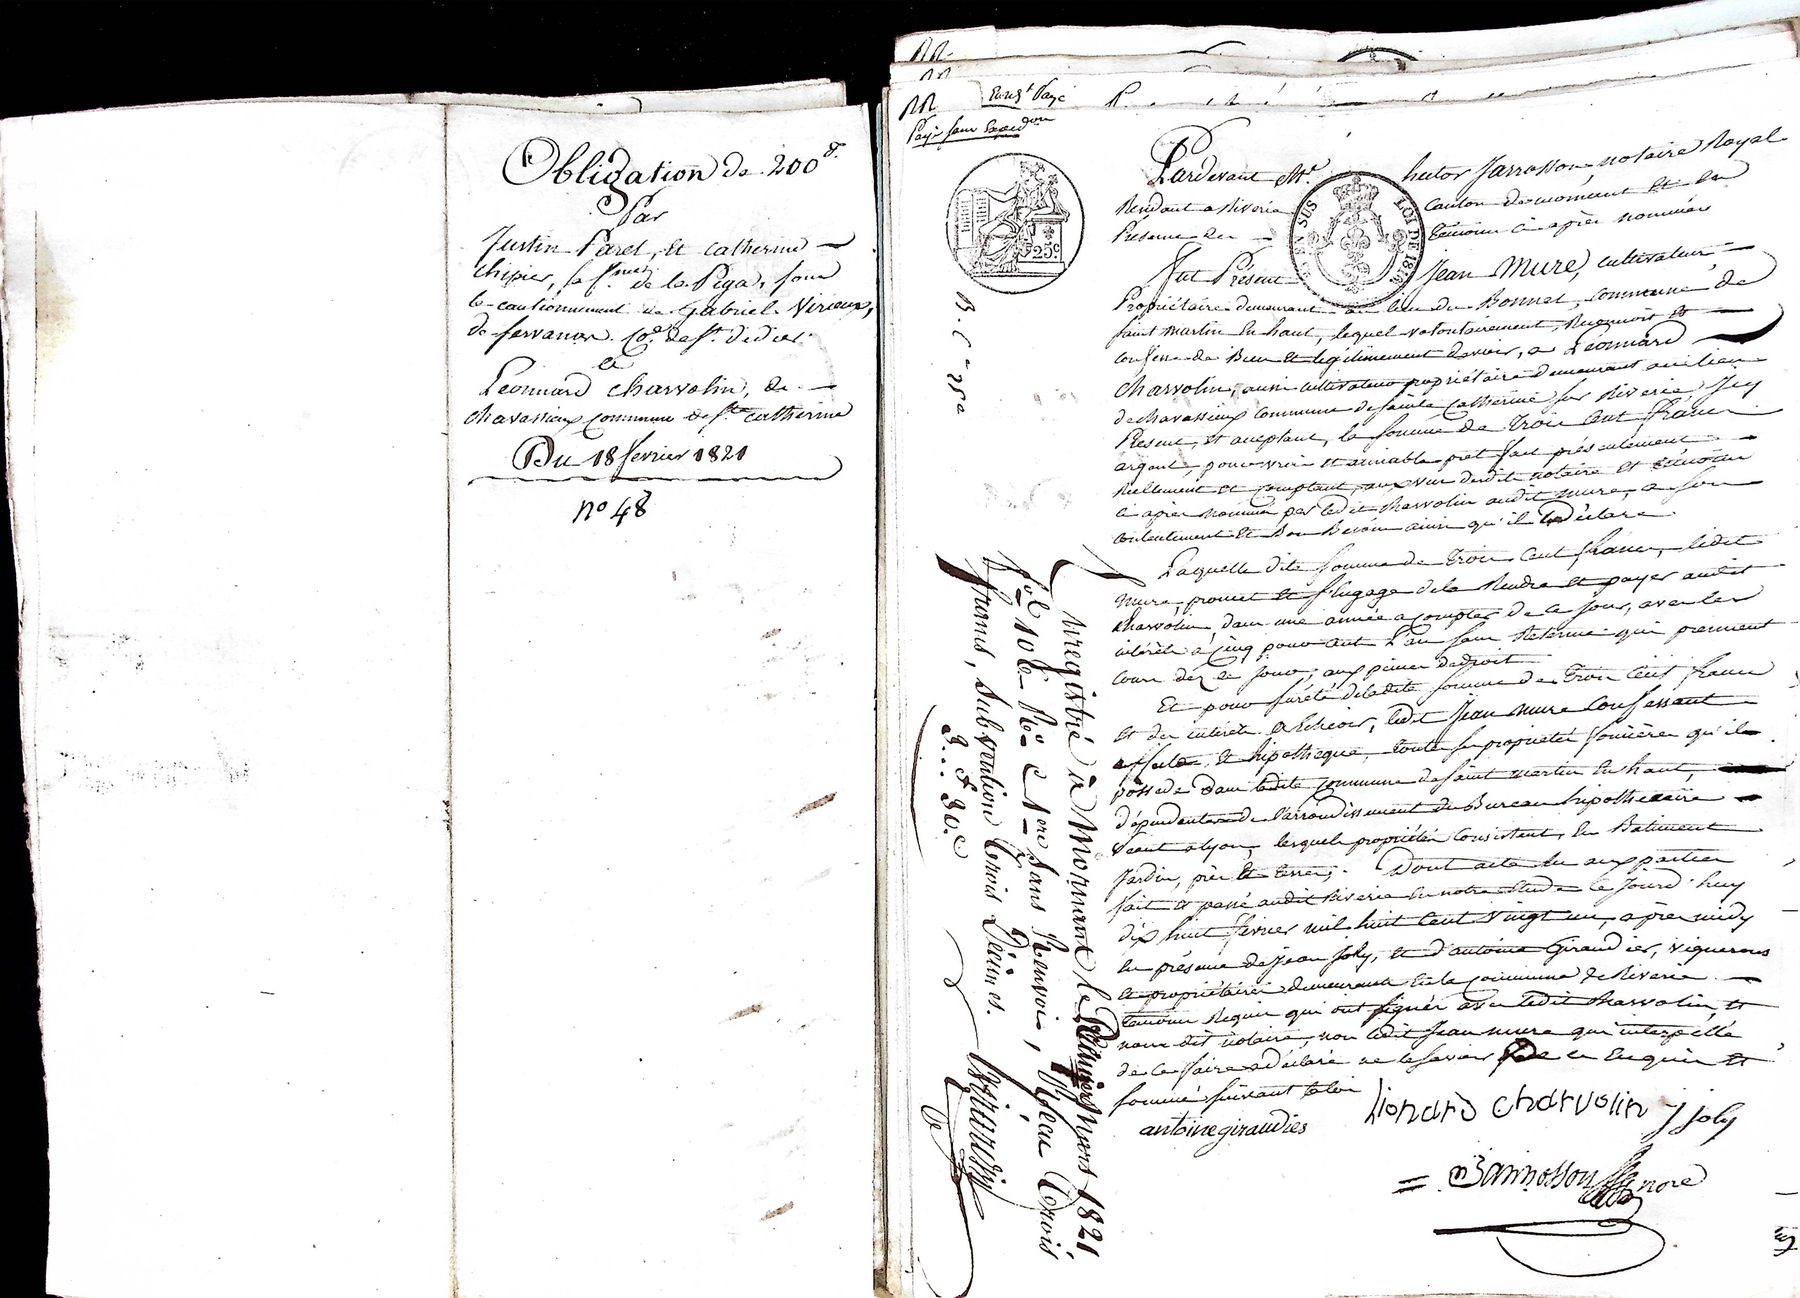 Obligation de 200 f.
Par
Justin Paret, et catherine
chipier, sa f.me de la Pigas, sous
le cautionnement de Gabriel Virieux,
de fervanon. Co.e de st. didier.
a
Leonnard charvolin, de
chavassieux commune de ste. catherine
Du 18 fevrier 1821
no 48
Enregt. Payé
Payé sans Expedon
Pardevant Me. hector Jarrosson, notaire Royal
Residant a Riverie canton de mornant Et En
Presence des témoins ci après nommés
fut Présent Jean Mure, cultivateur
Propriétaire demeurant au lieu du Bonnet, commune de
saint martin En haut, lequel volontairement, Reconnoit Et
confesse de Bien Et légitimement devoir, a Léonnard
Charvolin, aussi cultivateur propriétaire demeurant au lieu
de chavassieux commune de sainte Catherine sur Riverie, Icy
Présent, Et acceptant, la somme de trois cent francs
argent, pour vrai Et amiable pret fait présentement
Réellement Et comptant, aux vues dudit notaire Et témoins
ci après nommés par ledit charvolin audit mure, a son
contentement Et Bon Besoin ainsi qu'il le déclare.
Laquelle dite somme de trois cent francs, ledit
mure, promet Et s'engage de la Rendre Et payer audit
charvolin, dans une année a compter de ce jour, avec les
intérêts à cinq pour cent l'an sans Retenue qui prennent
cours dez ce jour, aux peines de droit
Et pour sûreté de ladite somme de trois cent francs
Et des intérêts a Echeoir, ledit Jean mure confessant
affecte, Et hipothèque, toutes ses propriétés foncières qu'il
possède dans ladite commune de saint martin En haut,
dépendantes de l'arrondissement du Bureau hipothécaire
séant a lyon, lesquels propriétés consistent, En Batiment
Jardin, près Et terres; Dont acte lu aux parties
fait Et passé audit Riverie En notre Etude ce jourd'huy
dix huit février mil huit cent vingt un, après midy
En présence de Jean Joly, Et d'antoine Giraudier, vignerons
Et propriétaires demeurants En la commune de Riverie
témoins Requis qui ont signés avec ledit charvolin, Et
nous dit notaire, non ledit Jean mure qui interpellé
de ce faire a déclaré ne le savoir de ce Enquis Et
sommé suivant la loi
antoine giraudier Lionard charvolin J joly
Jarrosson nore
EN SUS
LOI DE 1816
25c.
B. C = 25c
Enregistré à Mornant le Premier Mars 1821
fol 10 Ro. C 1ere sans Renvoi, Reçu trois
francs, subvention trois Décimes.
3 f 30 c